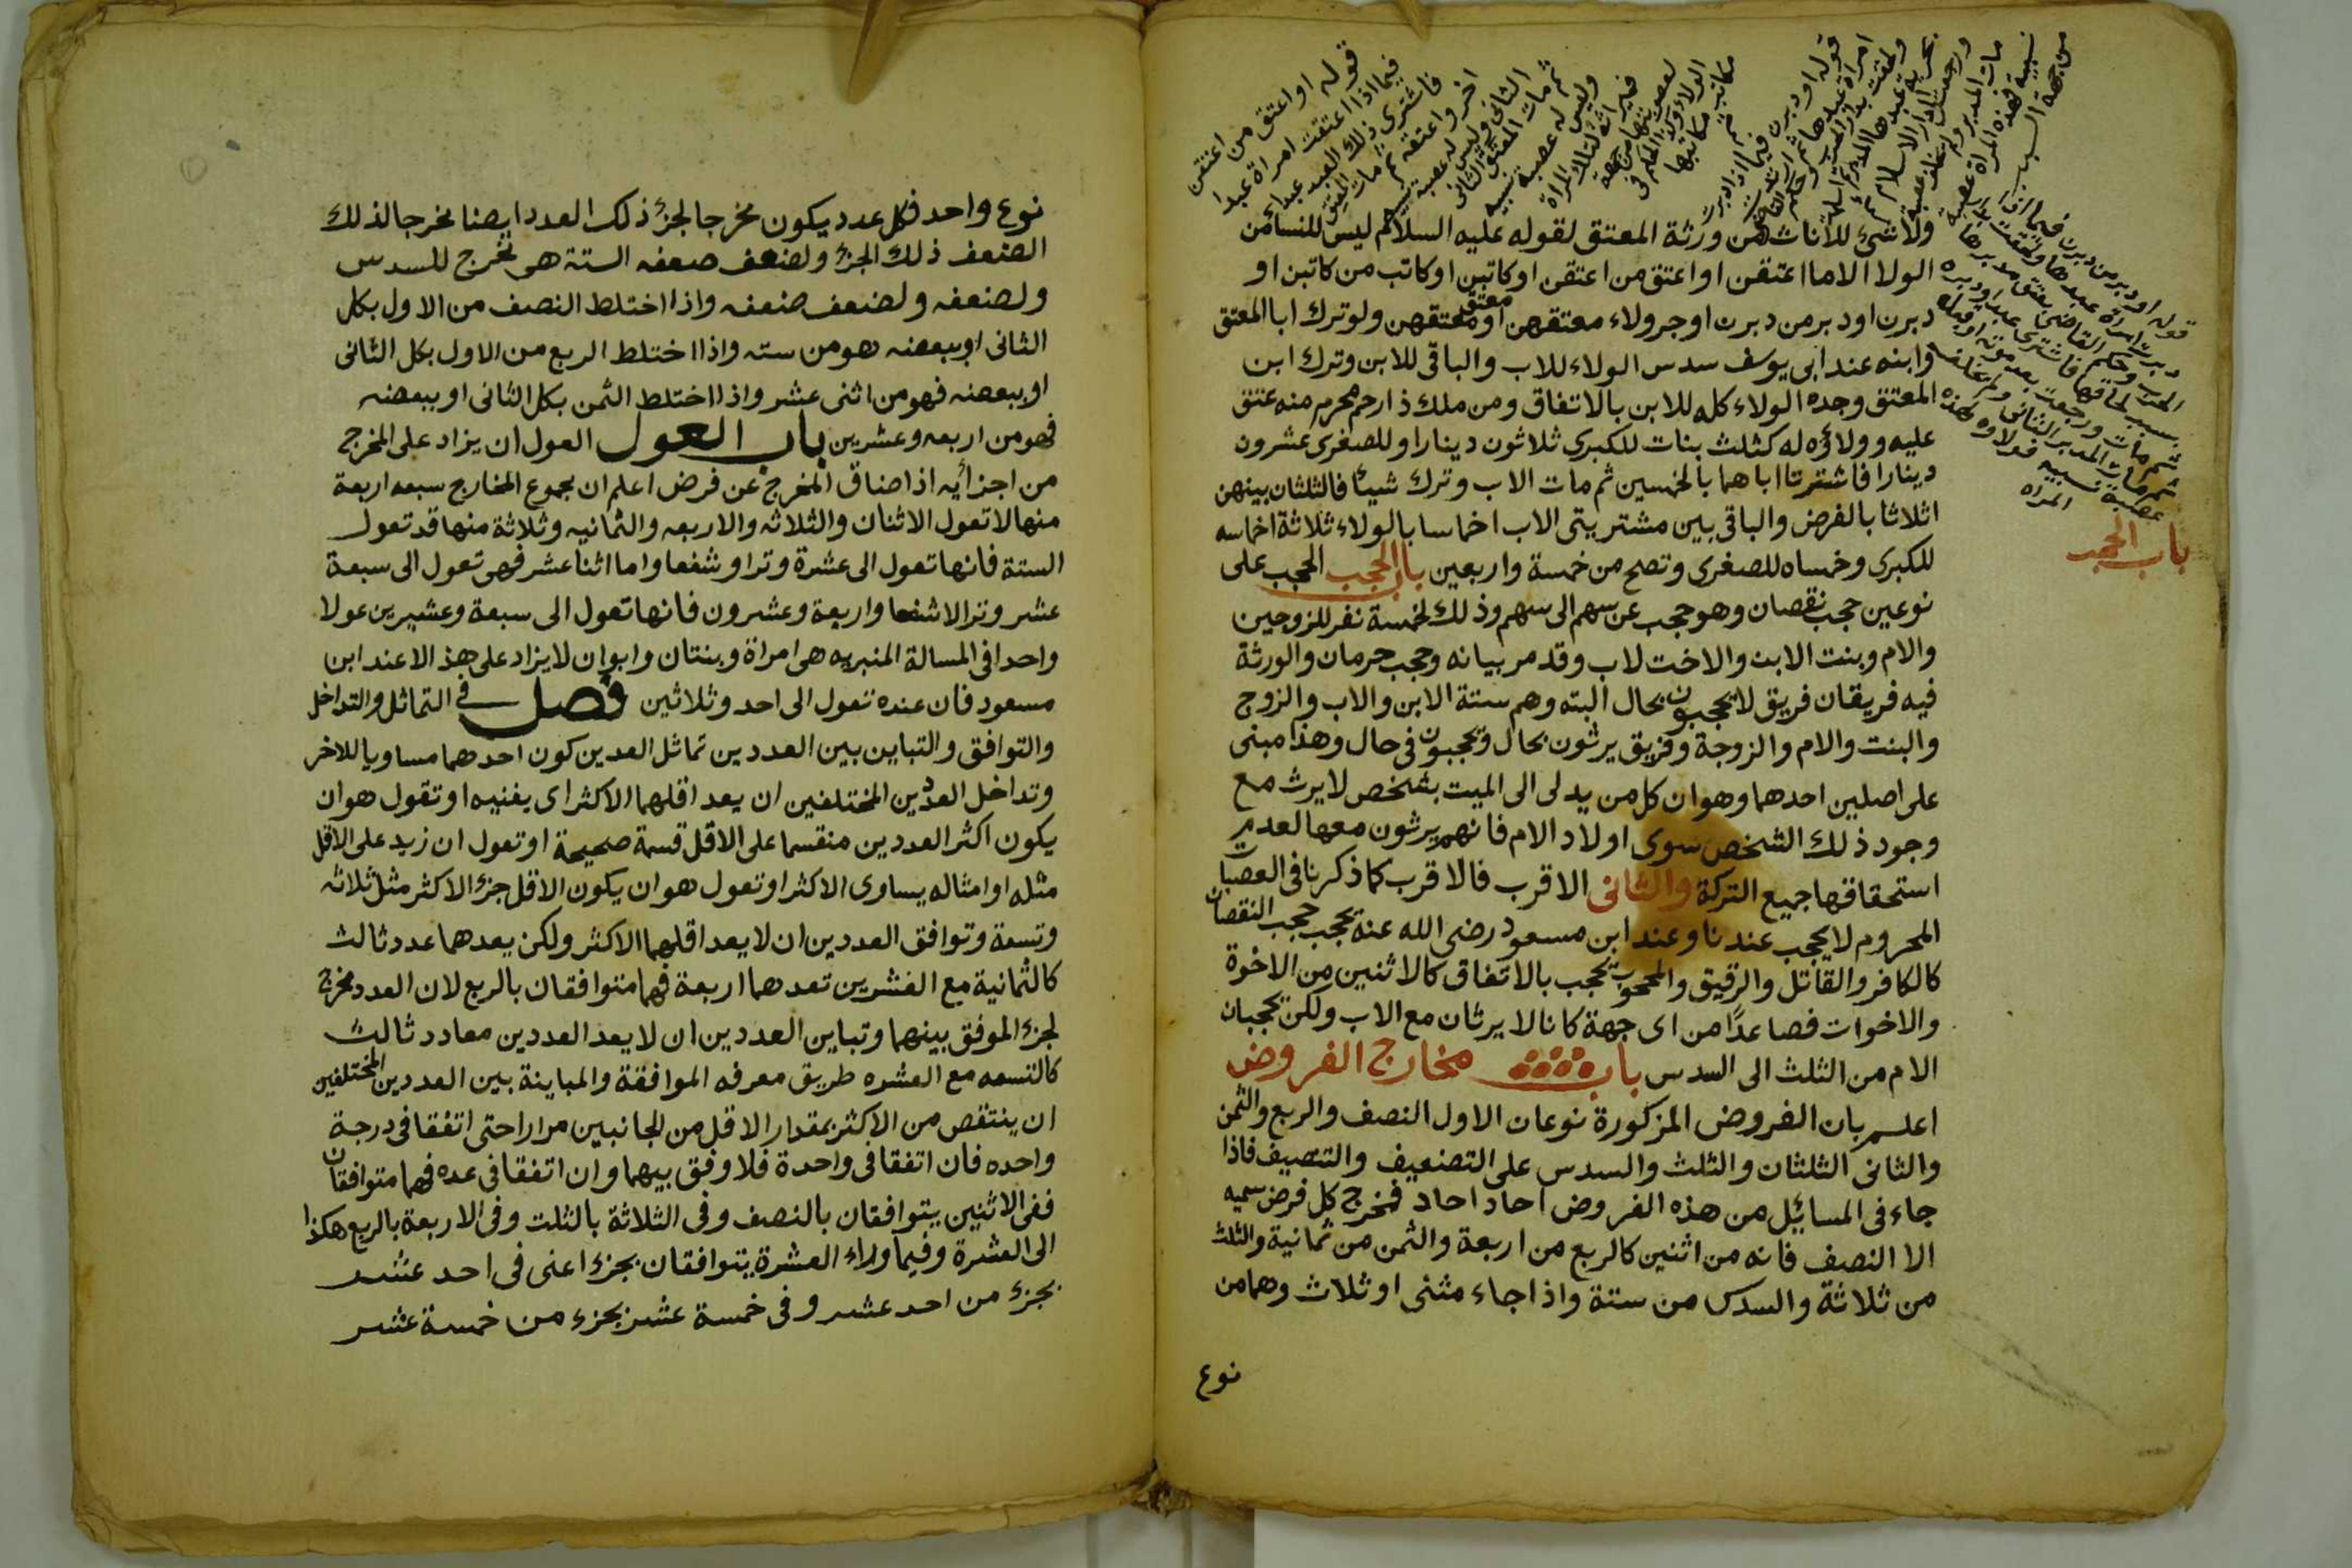 ولا شئ للاناث من ورثة المعتق لقوله عليه السلام ليس للنسا من
الولا الا ما اعتقن او اعتق من اعتقن او كاتبن او كاتب من كاتبن او
دبرن او دبر من دبرن او جر ولاء معتقهن او معتق معتقهن ولو ترك ابا المعتق
وابنه عند ابى يوسف سدس الولاء للاب والباقى للابن وترك ابن
المعتق وجده الولاء كله للابن بالاتفاق ومن ملك ذا رحم محرم منه عتق
عليه وولاؤه له كثلث بنات للكبرى ثلاثون دينارا وللصغرى عشرون
دينارا فاشترتا اباهما بالخمسين ثم مات الاب وترك شيئا فالثلثان بينهن
اثلاثا بالفرض والباقى بين مشتريتى الاب اخماسا بالولاء ثلاثة اخماسه
للكبرى وخمساه للصغرى وتصح من خمسة واربعين باب الحجب الحجب على
نوعين حجب نقصان وهو حجب عن سهم الى سهم وذلك لخمسة نفر للزوجين
والام وبنت الابن والاخت لاب وقد مر بيانه وحجب حرمان والورثة
فيه فريقان فريق لا يحجبون بحال البته وهم ستة الابن والاب والزوج
والبنت والام والزوجة وفريق يرثون بحال ويحجبون فى حال وهذا مبنى
على اصلين احدهما وهو ان كل من يدلى الى الميت بشخص لا يرث مع
وجود ذلك الشخص سوى اولاد الام فانهم يرثون معها لعدم
استحقاقها جميع التركة والثانى الاقرب فالاقرب كما ذكرنا فى العصبات
المحروم لا يحجب عندنا وعند ابن مسعود رضى الله عنه يحجب حجب النقصان
كالكافر والقاتل والرقيق والمحجوب يحجب بالاتفاق كالاثنين من الاخوة
والاخوات فصاعدًا من اى جهة كانا لا يرثان مع الاب ولكن يحجبان
الام من الثلث الى السدس باب مخارج الفروض
اعلم بان الفروض المزكورة نوعان الاول النصف والربع والثمن
والثانى الثلثان والثلث والسدس على التضعيف والتنصيف فاذا
جاء فى المسائيل من هذه الفروض احاد احاد فمخرج كل فرض سميه
الا النصف فانه من اثنين كالربع من اربعة والثمن من ثمانية والثلث
من ثلاثة والسدس من ستة واذا جاء مثنى او ثلاث وهما من
نوع
باب الحجب
قوله او اعتق من اعتقن
فيما اذا اعتقت امراة عبدا
فاشترى ذلك العبد عبدا
اخر واعتقه ثم مات المعتق
ثم مات المعتق الثانى
وليس له عصبة نسبيه
قوله او دبر من دبرن فيما اذا
دبرت امراة عبدها ولحقت بدار
ثم مات المدبر الثانى ولم يخلف
عصبة نسبيه فولاؤه لهذه
المراه
نوع واحد فكل عدد يكون مخرجا لجزء ذلك العدد ايضا مخرجا لذلك
الضعف ذلك الجزء ولضعف ضعفه الستة هى تخرج للسدس
ولضعفه ولضعف ضعفه واذا اختلط النصف من الاول بكل
الثانى او ببعضه هو من سته واذا اختلط الربع من الاول بكل الثانى
او ببعضه فهو من اثنى عشر واذا اختلط الثمن بكل الثانى او ببعضه
فهو من اربعه وعشرين باب العول العول ان يزاد على المخرج
من اجزائه اذا ضاق المخرج عن فرض اعلم ان مجموع المخارج سبعه اربعة
منها لا تعول الاثنان والثلاثه والاربعه والثمانيه وثلاثة منها قد تعول
الستة فانها تعول الى عشرة وترا وشفعا واما اثنا عشر فهى تعول الى سبعة
عشر وترا لا شفعا واربعة وعشرون فانها تعول الى سبعة وعشيرين عولا
واحدا فى المسالة المنبريه هى امراة وبنتان وابوان لا يزاد على هذ الا عند ابن
مسعود فان عنده تعول الى احد وثلاثين فصل فى التماثل والتداخل
والتوافق والتباين بين العددين تماثل العدين كون احدهما مساويا للاخر
وتداخل العددين المختلفين ان يعد اقلهما الاكثر اى يفنيه او تقول هو ان
يكون اكثر العددين منقسما على الاقل قسمة صحيحة او تعول ان زيد على الاقل
مثله او امثاله يساوى الاكثر او تعول هو ان يكون الاقل جزء الاكثر مثل ثلاثه
وتسعة وتوافق العددين ان لا يعد اقلهما الاكثر ولكن يعدهما عدد ثالث
كالثمانية مع العشرين تعدهما اربعة فهما متوافقان بالربع لان العدد مخرج
لجزء الموفق بينهما وتباين العددين ان لا يعد العددين معا عدد ثالث
كالتسعه مع العشره طريق معرفه الموافقة والمباينة بين العددين المختلفين
ان ينتقص من الاكثر بمقدار الاقل من الجانبين مرارا حتى اتفقا فى درجة
واحده فان اتفقا فى واحدة فلا وفق بيهما وان اتفقا فى عده فهما متوافقان
ففى الاثنين يتوافقان بالنصف وفى الثلاثة بالثلت وفى الاربعة بالربع هكذا
الى العشرة وفيما وراء العشرة يتوافقان بجزء اعنى فى احد عشر
بجزء من احد عشر وفى خمسة عشر بجزء من خمسة عشر